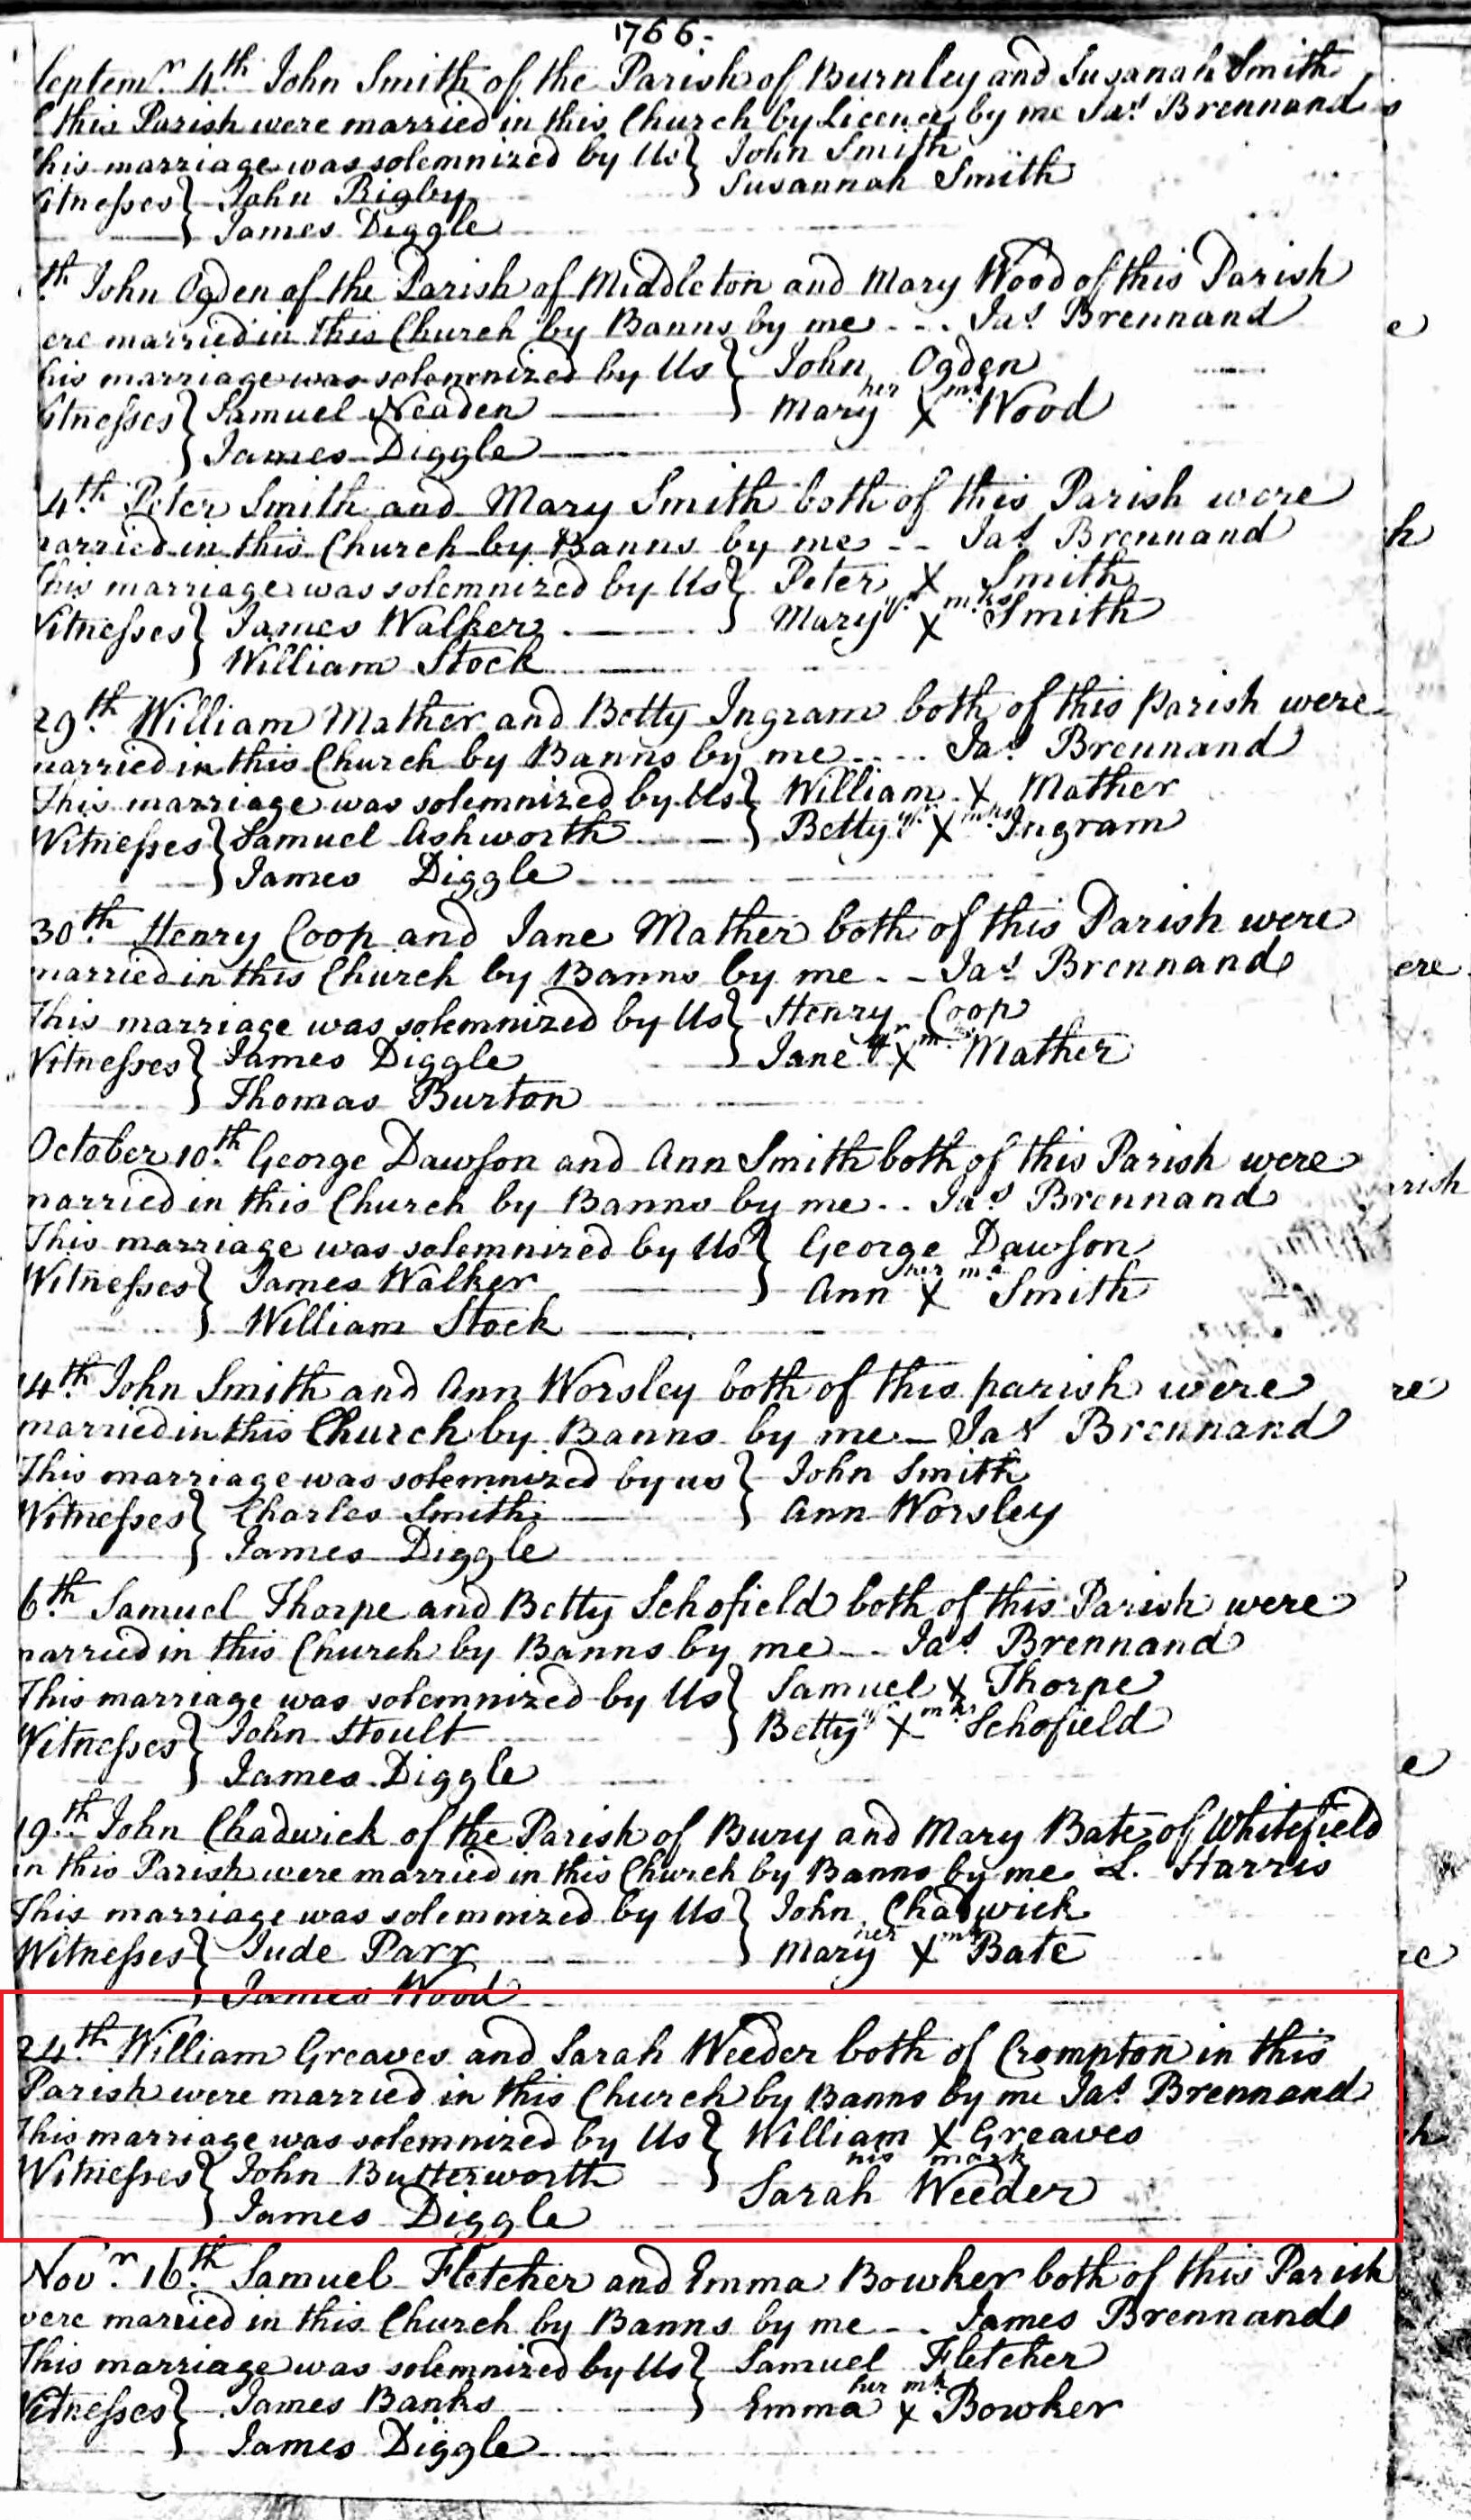 1766.
Septemr. 4th. John Smith of the Parish of Burnley and Susanah Smith
f this Parish were married in this Church by Licence by me Jas. Brennand
his marriage was solemnized by Us } John Smith
Susannah Smith
itnesses } John Bigby
James Diggle
th. John Ogden of the Parish of Middleton and Mary Wood of this Parish
ere married in this Church by Banns by me - - . Jas. Brennand
his marriage was solemnized by Us } John Ogden
itnesses } Samuel Neaden — Mary her X mk Wood
James Diggle
4th. Peter Smith and Mary Smith both of this Parish were
arried in this Church by Banns by me - - Jas. Brennand
This marriage was solemnized by Us } Peter X Smith
Witnesses } James Walker — Mary yr. X mks Smith
William Stock
29th. William Mather and Betty Ingram both of this parish were
arried in this Church by Banns by me - - . . Jas. Brennand
This marriage was solemnized by Us } William X Mather
Witnesses } Samuel Ashworth — Betty yr. X mks Ingram
James Diggle
30th. Henry Coop and Jane Mather both of this Parish were
married in this Church by Banns by me - - Jas. Brennand
This marriage was solemnized by Us } Henry Coop
Witnesses } James Diggle Jane X Mather
Thomas Burton
October 10th. George Dawson and Ann Smith both of this Parish were
married in this Church by Banns by me . . Jas. Brennand
This marriage was solemnized by Us } George Dawson
Witnesses } James Walker — Ann her X mk Smith
William Stock
14th. John Smith and Ann Worsley both of this parish were
married in this Church by Banns by me — Jas. Brennand
This marriage was solemnized by us } John Smith
Witnesses } Charles Smith — Ann Worsley
James Diggle
6th. Samuel Thorpe and Betty Schofield both of this Parish were
arried in this Church by Banns by me - - Jas. Brennand
This marriage was solemnized by Us } Samuel X Thorpe
Witnesses } John Stoult Betty yr X mks Schofield
James Diggle
19th. John Chadwick of the Parish of Bury and Mary Bate of Whitefield
in this Parish were married in this Church by Banns by me L. Harris
This marriage was solemnized by Us } John Chadwick
Witnesses } Jude Parr Mary her X mk Bate
James Wood
24th. William Greaves and Sarah Weeder both of Crompton in this
Parish were married in this Church by Banns by me Jas. Brennand
This marriage was solemnized by Us } William X Greaves
his mark
Witnesses } John Butterworth Sarah Weeder
James Diggle
Novr. 16th. Samuel Fletcher and Emma Bowker both of this Parish
were married in this Church by Banns by me - . James Brennand
This marriage was solemnized by Us } Samuel Fletcher
Witnesses } James Banks Emma her X mk Bowker
James Diggle